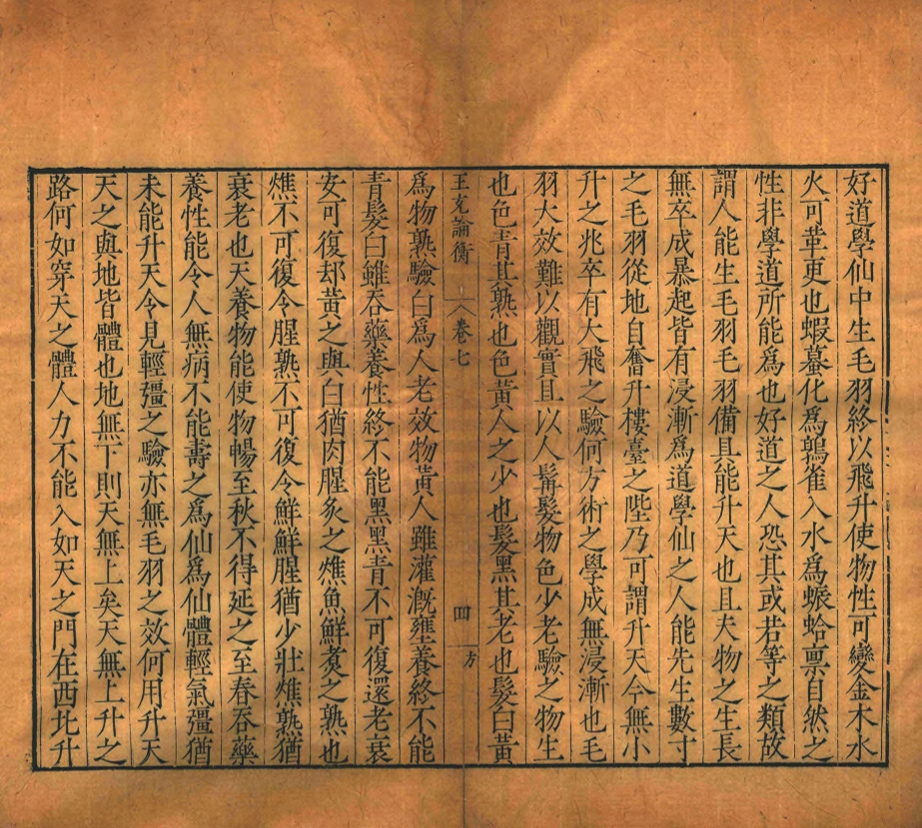 好道學仙中生毛羽終以飛升使物性可變金木水
火可革更也蝦蟇化爲鶉雀入水爲蜄蛤禀自然之
性非學道所能爲也好道之人恐其或若等之類故
謂人能生毛羽毛羽備具能升天也且夫物之生長
無卒成暴起皆有浸漸爲道學仙之人能先生數寸
之毛羽從地自奮升樓臺之陛乃可謂升天今無小
升之兆卒有大飛之驗何方術之學成無浸漸也毛
羽大效難以觀實且以人髯髮物色少老驗之物生
也色青其熟也色黃人之少也髮黑其老也髮白黃
王充論衡 卷七 四 方
爲物熟驗白爲人老效物黃人雖灌漑壅養終不能
青髮白雖吞藥養性終不能黑黑青不可復還老衰
安可復却黃之與白猶肉腥炙之燋魚鮮煑之熟也
燋不可復令腥熟不可復令鮮鮮腥猶少壯燋熟猶
衰老也天養物能使物暢至秋不得延之至春吞藥
養性能令人無病不能壽之爲仙爲仙體輕氣彊猶
未能升天令見輕彊之驗亦無毛羽之效何用升天
天之與地皆體也地無下則天無上矣天無上升之
路何如穿天之體人力不能入如天之門在西北升